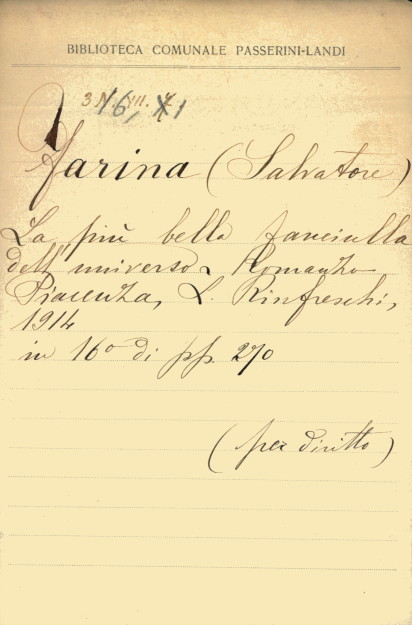 BIBLIOTECA COMUNALE PASSERINI-LANDI
16,
Farina (Salvatore)
La più bella fanciulla
dell'universo. Romanzo
Piacenza, L. Rinfreschi,
1914
in 16° di pp. 270
(per diritto)